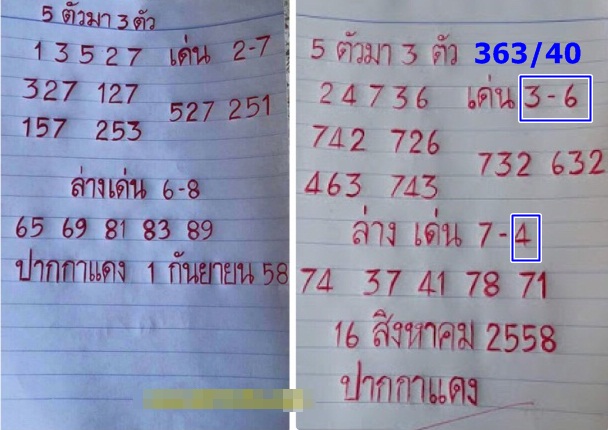 5 ตัวมา 3 ตัว
1 3 5 2 7 เด่น 2-7
327 127
527 251
157 253
ล่างเด่น 6-8
65 69 81 83 89
ปากกาแดง 1 กันยายน 58
5 ตัวมา 3 ตัว 363/40
2 4 7 3 6 เด่น 3-6
742 726
732 632
463 743
ล่าง เด่น 7-4
74 37 41 78 71
16 สิงหาคม 2558
ปากกาแดง